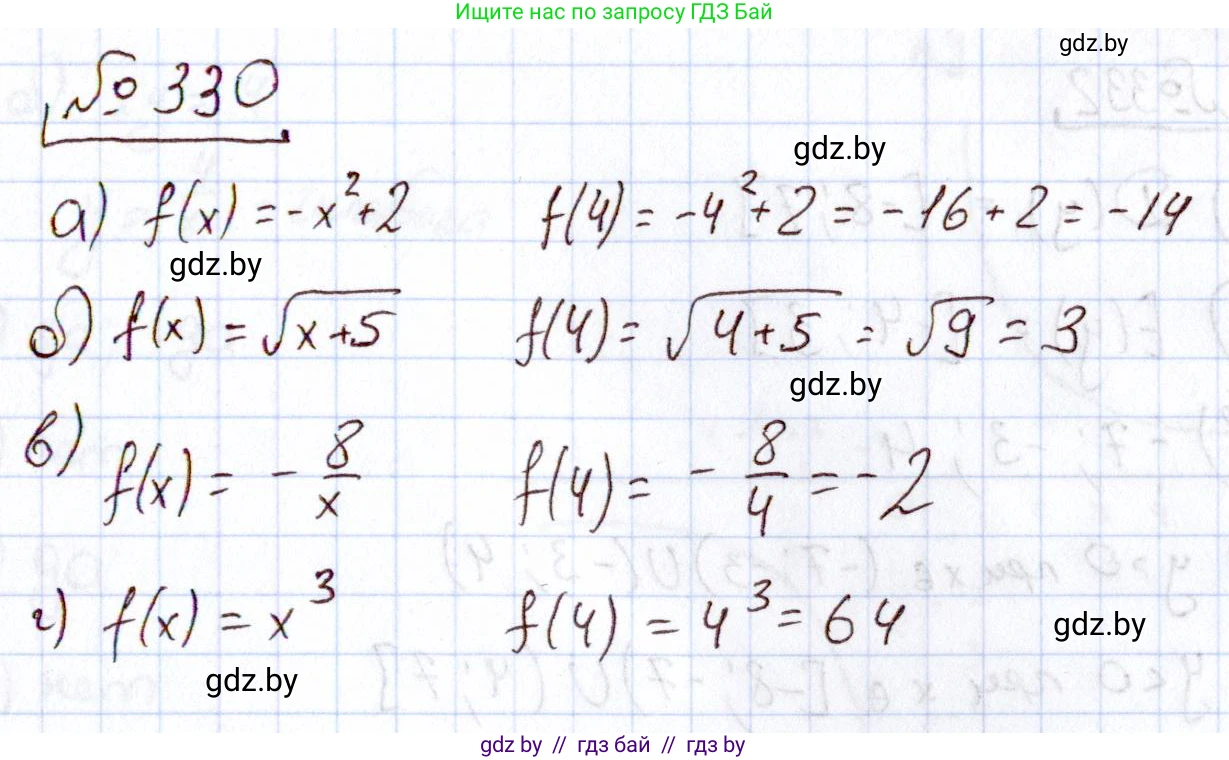 Ищите нас по запросу ГДЗ Бай
gdz.by
№ 330
gdz.by
а) f(x) = -x²+2 f(4) = -4²+2 = -16+2 = -14
gdz.by
б) f(x) = √(x+5) f(4) = √(4+5) = √9 = 3
gdz.by
в) f(x) = - 8/x f(4) = - 8/4 = -2
г) f(x) = x³ f(4) = 4³ = 64
gdz.by
gdz.by
gdz by // гдз бай // гдз by